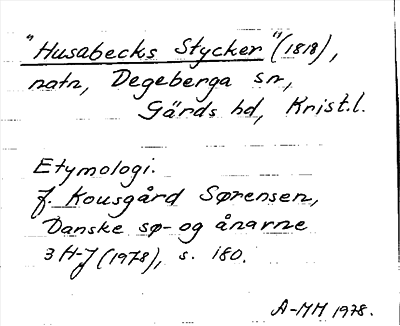 "Husabecks Stycker" (1818),
natn, Degeberga sn,
Gärds hd, Krist.l.
Etymologi.
J. Kousgård Sørensen,
Danske sø- og ånavne
3 H-J (1978), s. 180.
A-MH 1978.